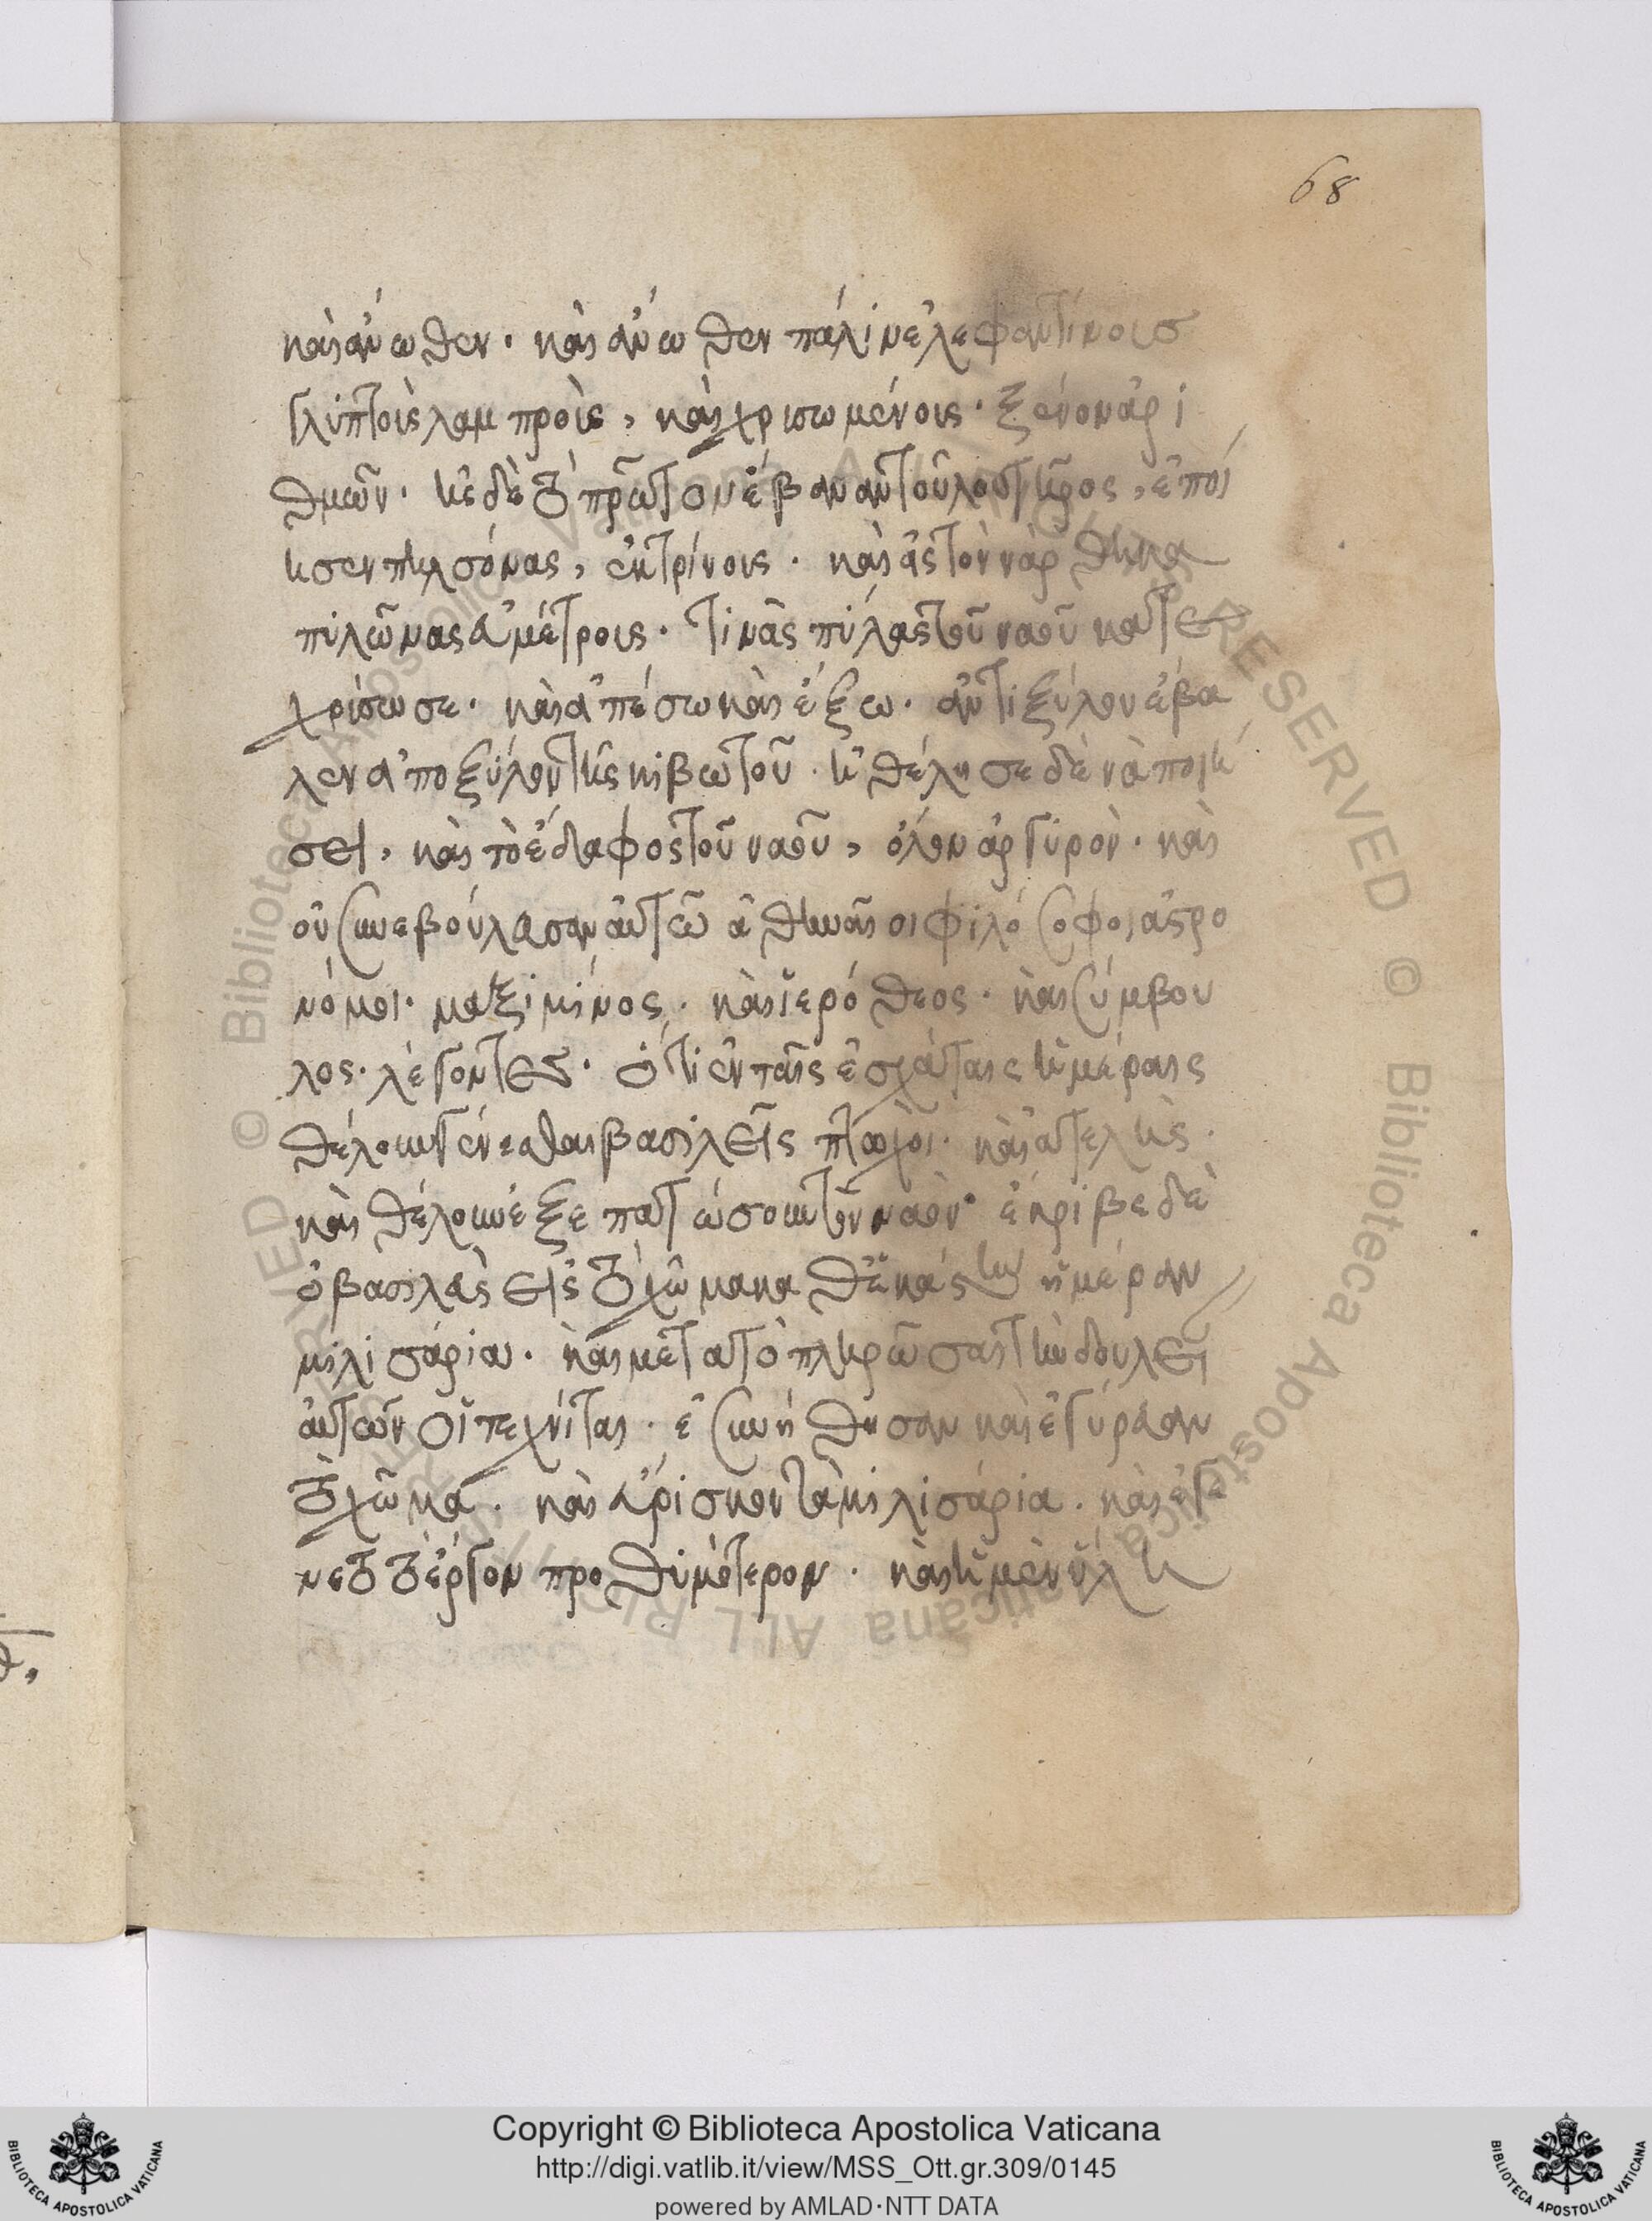 68
καὶ ἄνωθεν · καὶ ἄνωθεν πάλιν ἐλεφαντίνοισ
γλιπτοὶς λαμπροὶς , καὶ χρισωμένοις · ξένον ἀρι
θμῶν · εἰς δὲ τὸ πρῶτον ἔβαν αὐτοῦ λουτῆρος , ἐποί
ησεν πυλσόνας , ἐκτρίνοις · καὶ ἀς τὸν νάρθηκα
πιλῶνας ἀμέτροις · τινὰς πύλας τοῦ ναοῦ κατε
χρίσωσε · καὶ ἀπέσω καὶ ἔξω · ἀντι ξύλου ἔβα
λεν ἀπο ξύλου τῆς κιβωτοῦ · ἠθέλησε δὲ νὰ ποιή
σει , καὶ τὸ ἔδαφος τοῦ ναοῦ , ὅλον ἀργύρὸν · καὶ
οὐ συνεβούλασαν αὐτῶ ἀθηναῖοι φιλόσοφοι ἀστρο
νόμοι · μαξιμίνος · καὶ ἱερόθεος · καὶ σύμβου
λος · λέγοντες · ὅτι ἐν ταῖς ἐσχάταις ἡμέραις
θέλουν γένεσθαι βασιλεῖς πτωχοι · καὶ ἀτελὴς ·
καὶ θέλουν ἐξεπατώσουν τὸν ναόν · ἔκριβε δὲ
ὁ βασιλὰς εἰς τὸ χῶμα καθεκάστην ἡμέραν
μιλισάρια · καὶ μετα τὸ πληρῶσαι τὴν δουλεῖ
αὐτῶν οἱ τεχνίται · ἐσυνήθησαν καὶ ἐγύρααν
τὸ χῶμα · καὶ ἀρίσκον τὰ μιλισάρια · καὶ ἐγέ
νετο τὸ ἔργον προθιμότερον · καὶ ἡ μὲν ὕλη
Copyright © Biblioteca Apostolica Vaticana
http://digi.vatlib.it/view/MSS_Ott.gr.309/0145
powered by AMLAD·NTT DATA